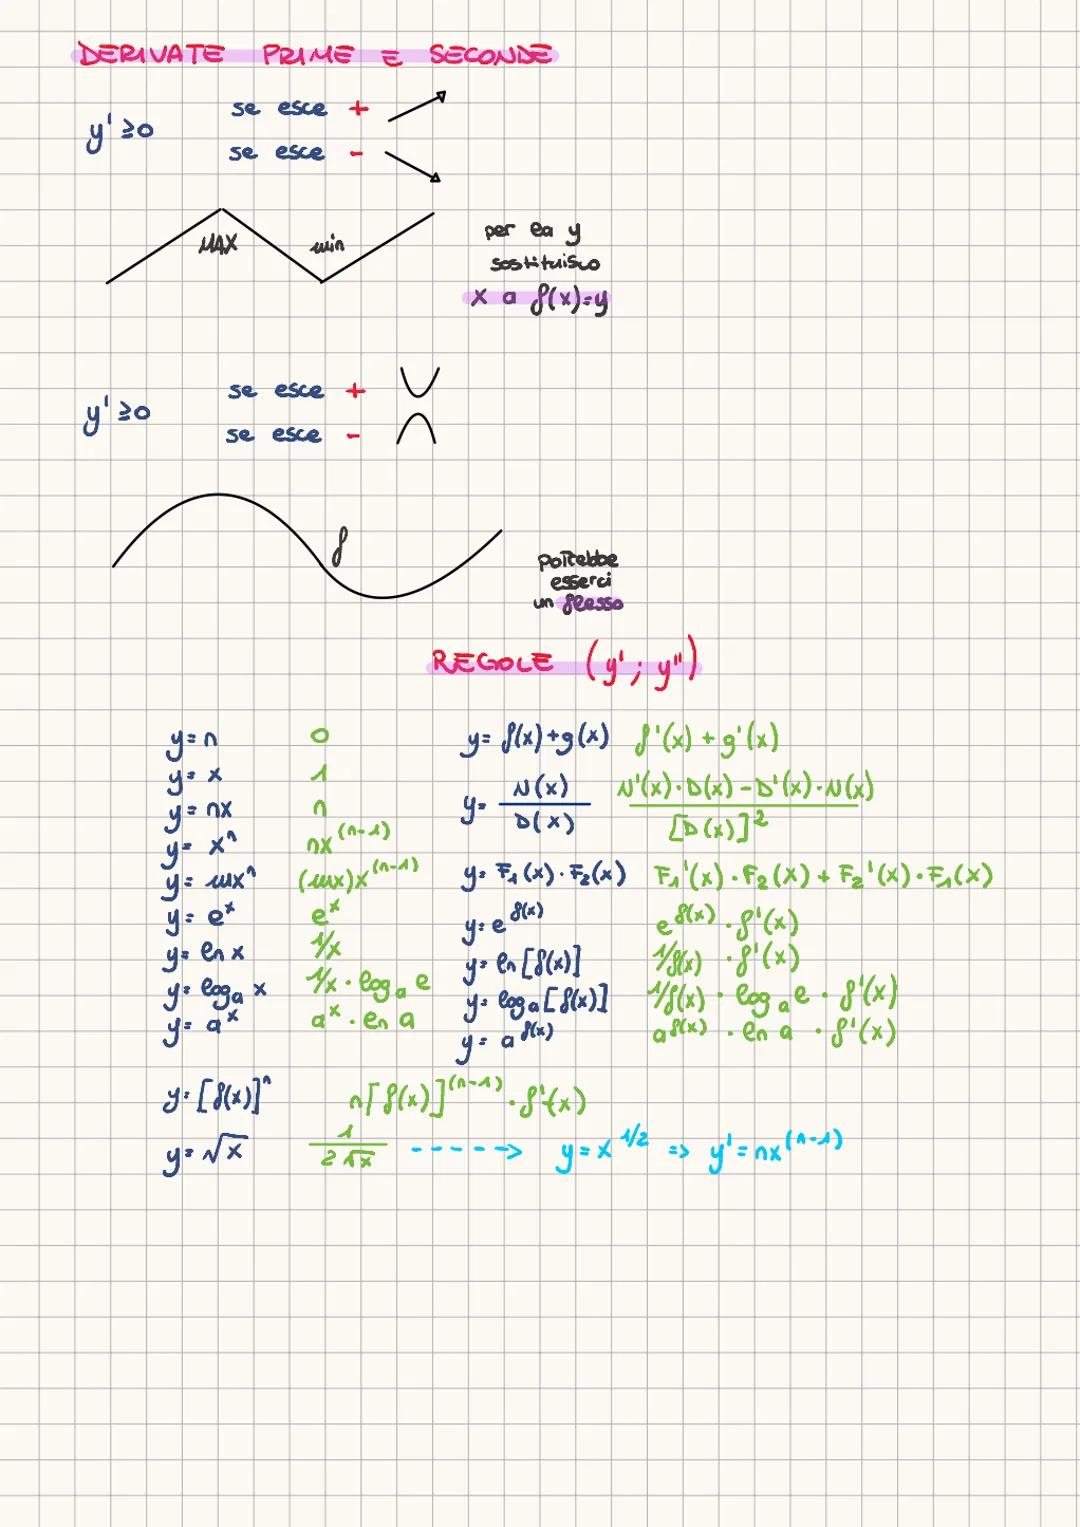 DERIVATE PRIME E SECONDE
y' ≥0
se esce +
se esce -
MAX
min
per la y
sostituisco
x a f(x)=y
y' ≥0
se esce +
se esce -
f
potrebbe
esserci
un flesso
REGOLE (y'; y")
y=n 0
y=x 1
y=nx n
y= xⁿ nx⁽ⁿ⁻¹⁾
y= mxⁿ (mx)x⁽ⁿ⁻¹⁾
y= eˣ eˣ
y= ln x 1/x
y= logₐ x 1/x · logₐ e
y= aˣ aˣ · ln a
y= f(x)+g(x) f'(x) + g'(x)
y= N(x)/D(x) N'(x)·D(x) - D'(x)·N(x)/[D(x)]²
y= F₁(x)·F₂(x) F₁'(x)·F₂(x) + F₂'(x)·F₁(x)
y= e^f(x) e^f(x) · f'(x)
y= ln [f(x)] 1/f(x) · f'(x)
y= logₐ [f(x)] 1/f(x) · logₐ e · f'(x)
y= a^f(x) a^f(x) · ln a · f'(x)
y= [f(x)]ⁿ n[f(x)]⁽ⁿ⁻¹⁾ · f'(x)
y= √x 1/2√x -----> y= x^1/2 => y'= nx⁽ⁿ⁻¹⁾